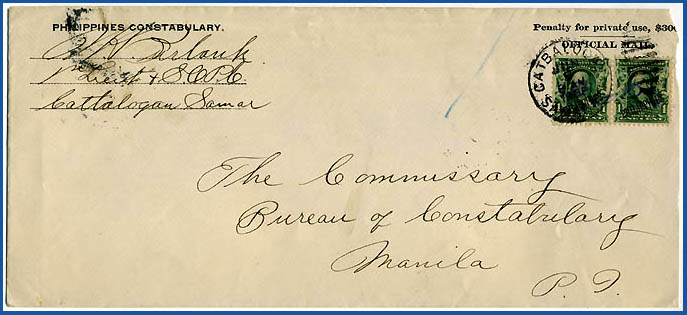 PHILIPPINES CONSTABULARY.
Penalty for private use, $300
OFFICIAL MAIL.
1st Lieut & S.O.P.C.
Cattalogan Samar
CATBALOG
The Commissary
Bureau of Constabulary
Manila
P. I.